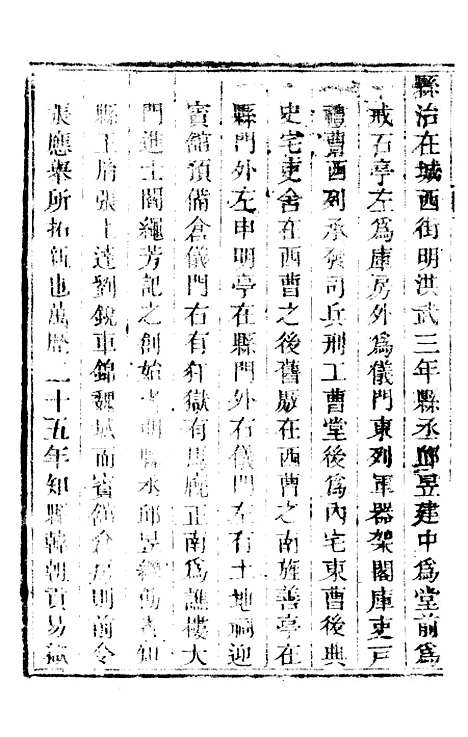 縣治在城西街明洪武三年縣丞邱昱建中爲堂前爲
戒石亭左爲庫房外爲儀門東列軍器架閣庫吏戸
禮曹西列承發司兵刑工曹堂後爲内宅東曹後典
史宅吏舍在西曹之後舊廄在西曹之南旌善亭在
縣門外左申明亭在縣門外右儀門左有土地祠迎
賓舘預備倉儀門右有犴獄有馬廐正南爲譙樓大
門進士閻繩芳記之創始者明縣丞邱昱繼勤者知
縣王脩張士達劉銳車錦魏城而賓舘倉房則前令
張應舉所拓新也萬歷二十五年知縣韓朝貢易